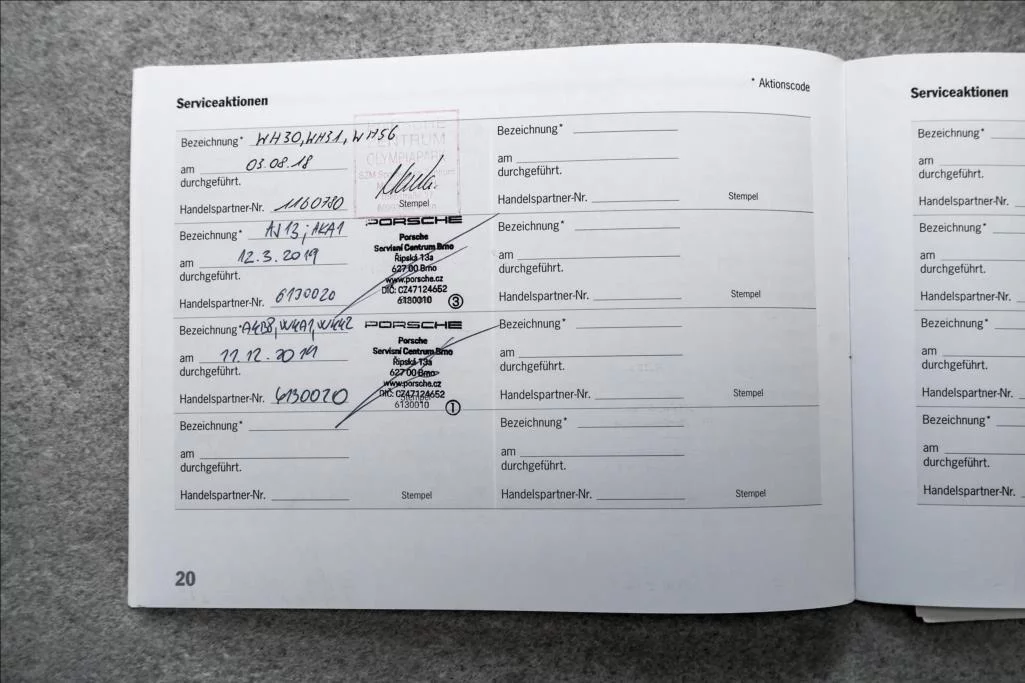 Serviceaktionen
* Aktionscode
Bezeichnung* WH30, WH31, WH56
am 03.08.18
durchgeführt.
Handelspartner-Nr. 1160780
Stempel
PORSCHE
ZENTRUM
OLYMPIAPARK
Bezeichnung* AJ13, AKA1
am 12.3.2019
durchgeführt.
Handelspartner-Nr. 6130020
PORSCHE
Porsche
Servisní Centrum Brno
Řipská 13a
627 00 Brno
www.porsche.cz
DIČ: CZ47124652
6130010 ③
Bezeichnung*
am 11.12.2019
durchgeführt.
Handelspartner-Nr. 6130020
PORSCHE
Porsche
Servisní Centrum Brno
Řipská 13a
627 00 Brno
www.porsche.cz
DIČ: CZ47124652
Stempel
6130010 ①
Bezeichnung*
am
durchgeführt.
Handelspartner-Nr.
Stempel
Bezeichnung*
am
durchgeführt.
Handelspartner-Nr.
Stempel
Bezeichnung*
am
durchgeführt.
Handelspartner-Nr.
Stempel
Bezeichnung*
am
durchgeführt.
Handelspartner-Nr.
Stempel
Bezeichnung*
am
durchgeführt.
Handelspartner-Nr.
Stempel
20
Serviceaktionen
Bezeichnung*
am
durchgeführt.
Handelspartner-Nr.
Bezeichnung*
am
durchgeführt.
Handelspartner-Nr.
Bezeichnung*
am
durchgeführt.
Handelspartner-Nr.
Bezeichnung*
am
durchgeführt.
Handelspartner-Nr.